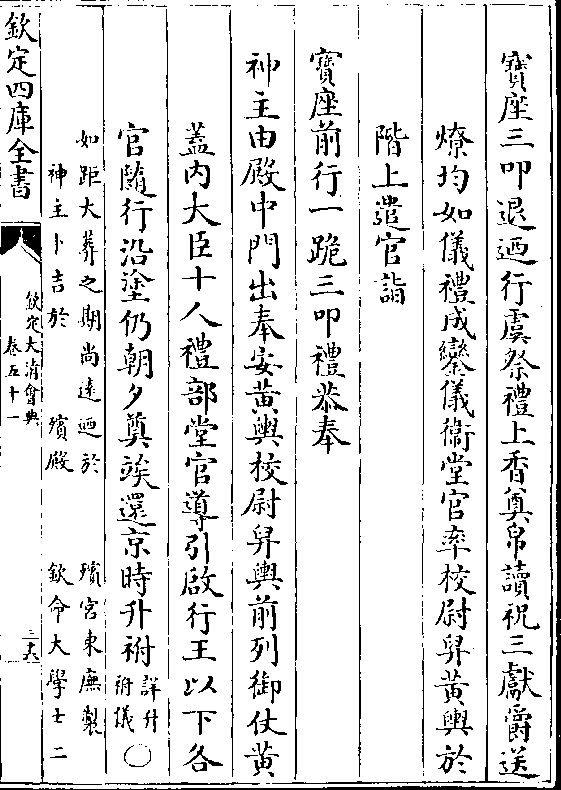 寳座三叩退廼行虞祭禮上香奠帛讀祝三獻爵送
燎均如儀禮成鑾儀衛堂官率校尉舁黄輿於
階上遣官詣
寳座前行一跪三叩禮恭奉
神主由殿中門出奉安黄輿校尉舁輿前列御仗黄
蓋内大臣十人禮部堂官導引啟行王以下各
官隨行沿塗仍朝夕奠竢還京時升祔詳升祔儀○
如距大葬之期尚遠廼於殯宮東廡製
神主卜吉於殯殿欽命大學士二
欽定四庫全書
欽定大清會典
卷五十一